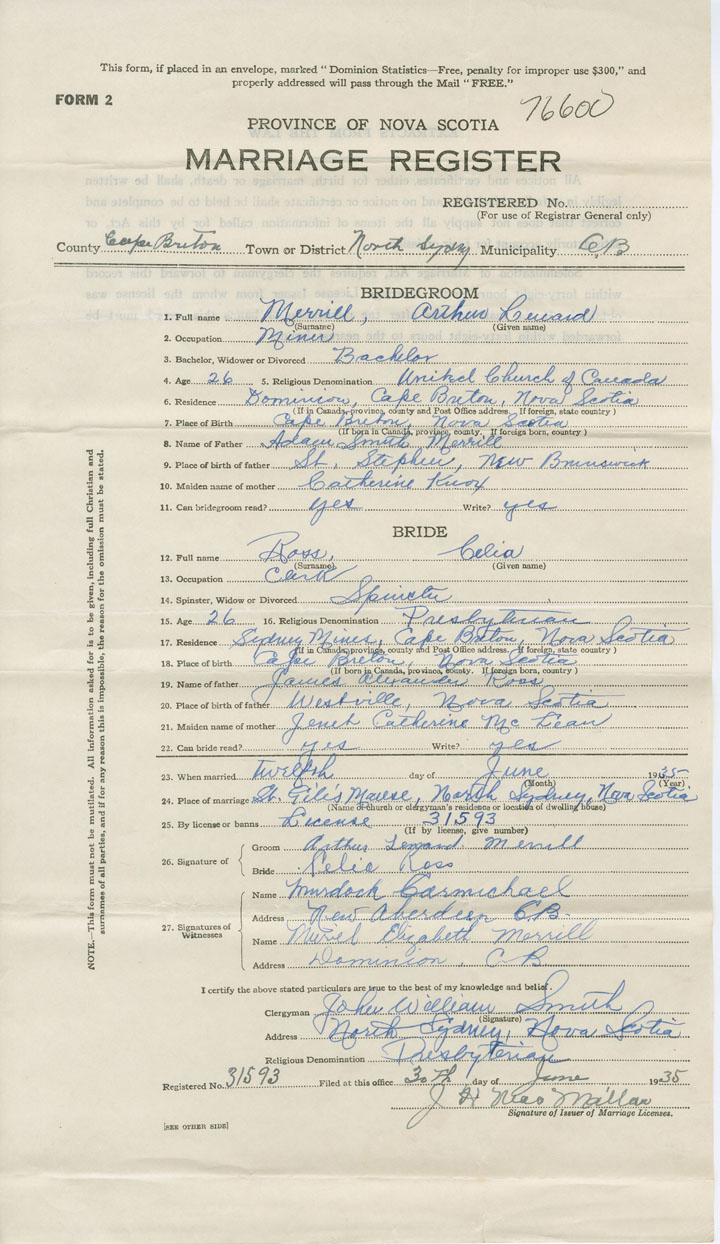 This form, if placed in an envelope, marked "Dominion Statistics—Free, penalty for improper use $300," and
properly addressed will pass through the Mail "FREE."
FORM 2
76600
PROVINCE OF NOVA SCOTIA
MARRIAGE REGISTER
REGISTERED No.
(For use of Registrar General only)
County Cape Breton Town or District North Sydney Municipality C.B
BRIDEGROOM
1. Full name Merrill, Arthur Lenard
(Surname) (Given name)
2. Occupation Miner
3. Bachelor, Widower or Divorced Bachelor
4. Age 26 5. Religious Denomination United Church of Canada
6. Residence Dominion, Cape Breton, Nova Scotia
(If in Canada, province, county and Post Office address. If foreign, state country )
7. Place of Birth Cape Breton, Nova Scotia
(If born in Canada, province, county. If foreign born, country )
8. Name of Father Adam Smith Merrill
9. Place of birth of father St. Stephen, New Brunswick
10. Maiden name of mother Catherine Knox
11. Can bridegroom read? yes Write? yes
BRIDE
12. Full name Ross, Celia
(Surname) (Given name)
13. Occupation Clerk
14. Spinster, Widow or Divorced Spinster
15. Age 26 16. Religious Denomination Presbyterian
17. Residence Sidney Mines, Cape Breton, Nova Scotia
(If in Canada, province, county and Post Office address. If foreign, state country )
18. Place of birth Cape Breton, Nova Scotia
(If born in Canada, province, county. If foreign born, country )
19. Name of father James Alexander Ross
20. Place of birth of father Westville, Nova Scotia
21. Maiden name of mother Jenet Catherine McLean
22. Can bride read? yes Write? yes
23. When married twelfth day of June 1935
(Month) (Year)
24. Place of marriage St. Giles Manse, North Sydney, Nova Scotia
(Name of church or clergyman's residence or location of dwelling house)
25. By license or banns License 31593
(If by license, give number)
26. Signature of
Groom Arthur Lenard Merrill
Bride Celia Ross
27. Signatures of Witnesses
Name Murdock Carmichael
Address New Aberdeen C.B.
Name Muriel Elizabeth Merrill
Address Dominion, C.B.
I certify the above stated particulars are true to the best of my knowledge and belief.
Clergyman John William Smith
(Signature)
Address North Sydney, Nova Scotia
Religious Denomination Presbyterian
Registered No. 31593 Filed at this office 30th day of June 1935
J H
Signature of Issuer of Marriage Licenses.
[SEE OTHER SIDE]
NOTE.—This form must not be mutilated. All information asked for is to be given, including full Christian and
surnames of all parties, and if for any reason this is impossible, the reason for the omission must be stated.